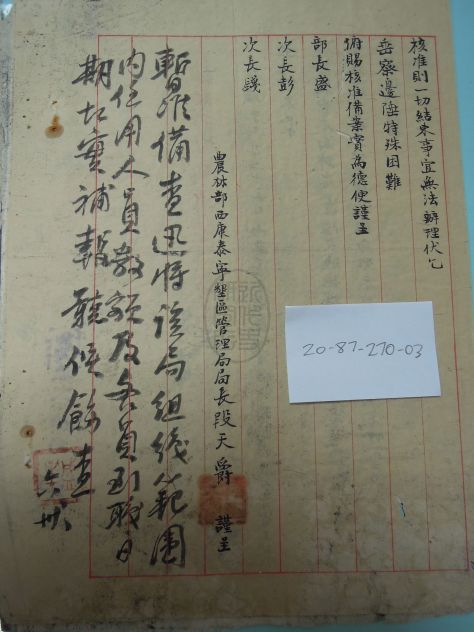 核准則一切結束事宜無法辦理伏乞
垂察邊陲特殊困難
俯賜核准備案實為德便謹呈
部長盛
次長彭
次長錢
農林部西康泰寧墾區管理局局長段天爵 謹呈
暫准備查迅將該局組織範圍
內任用人員數額及各員到職日
期切實補報聽候餘查
六 卅
20-87-270-03